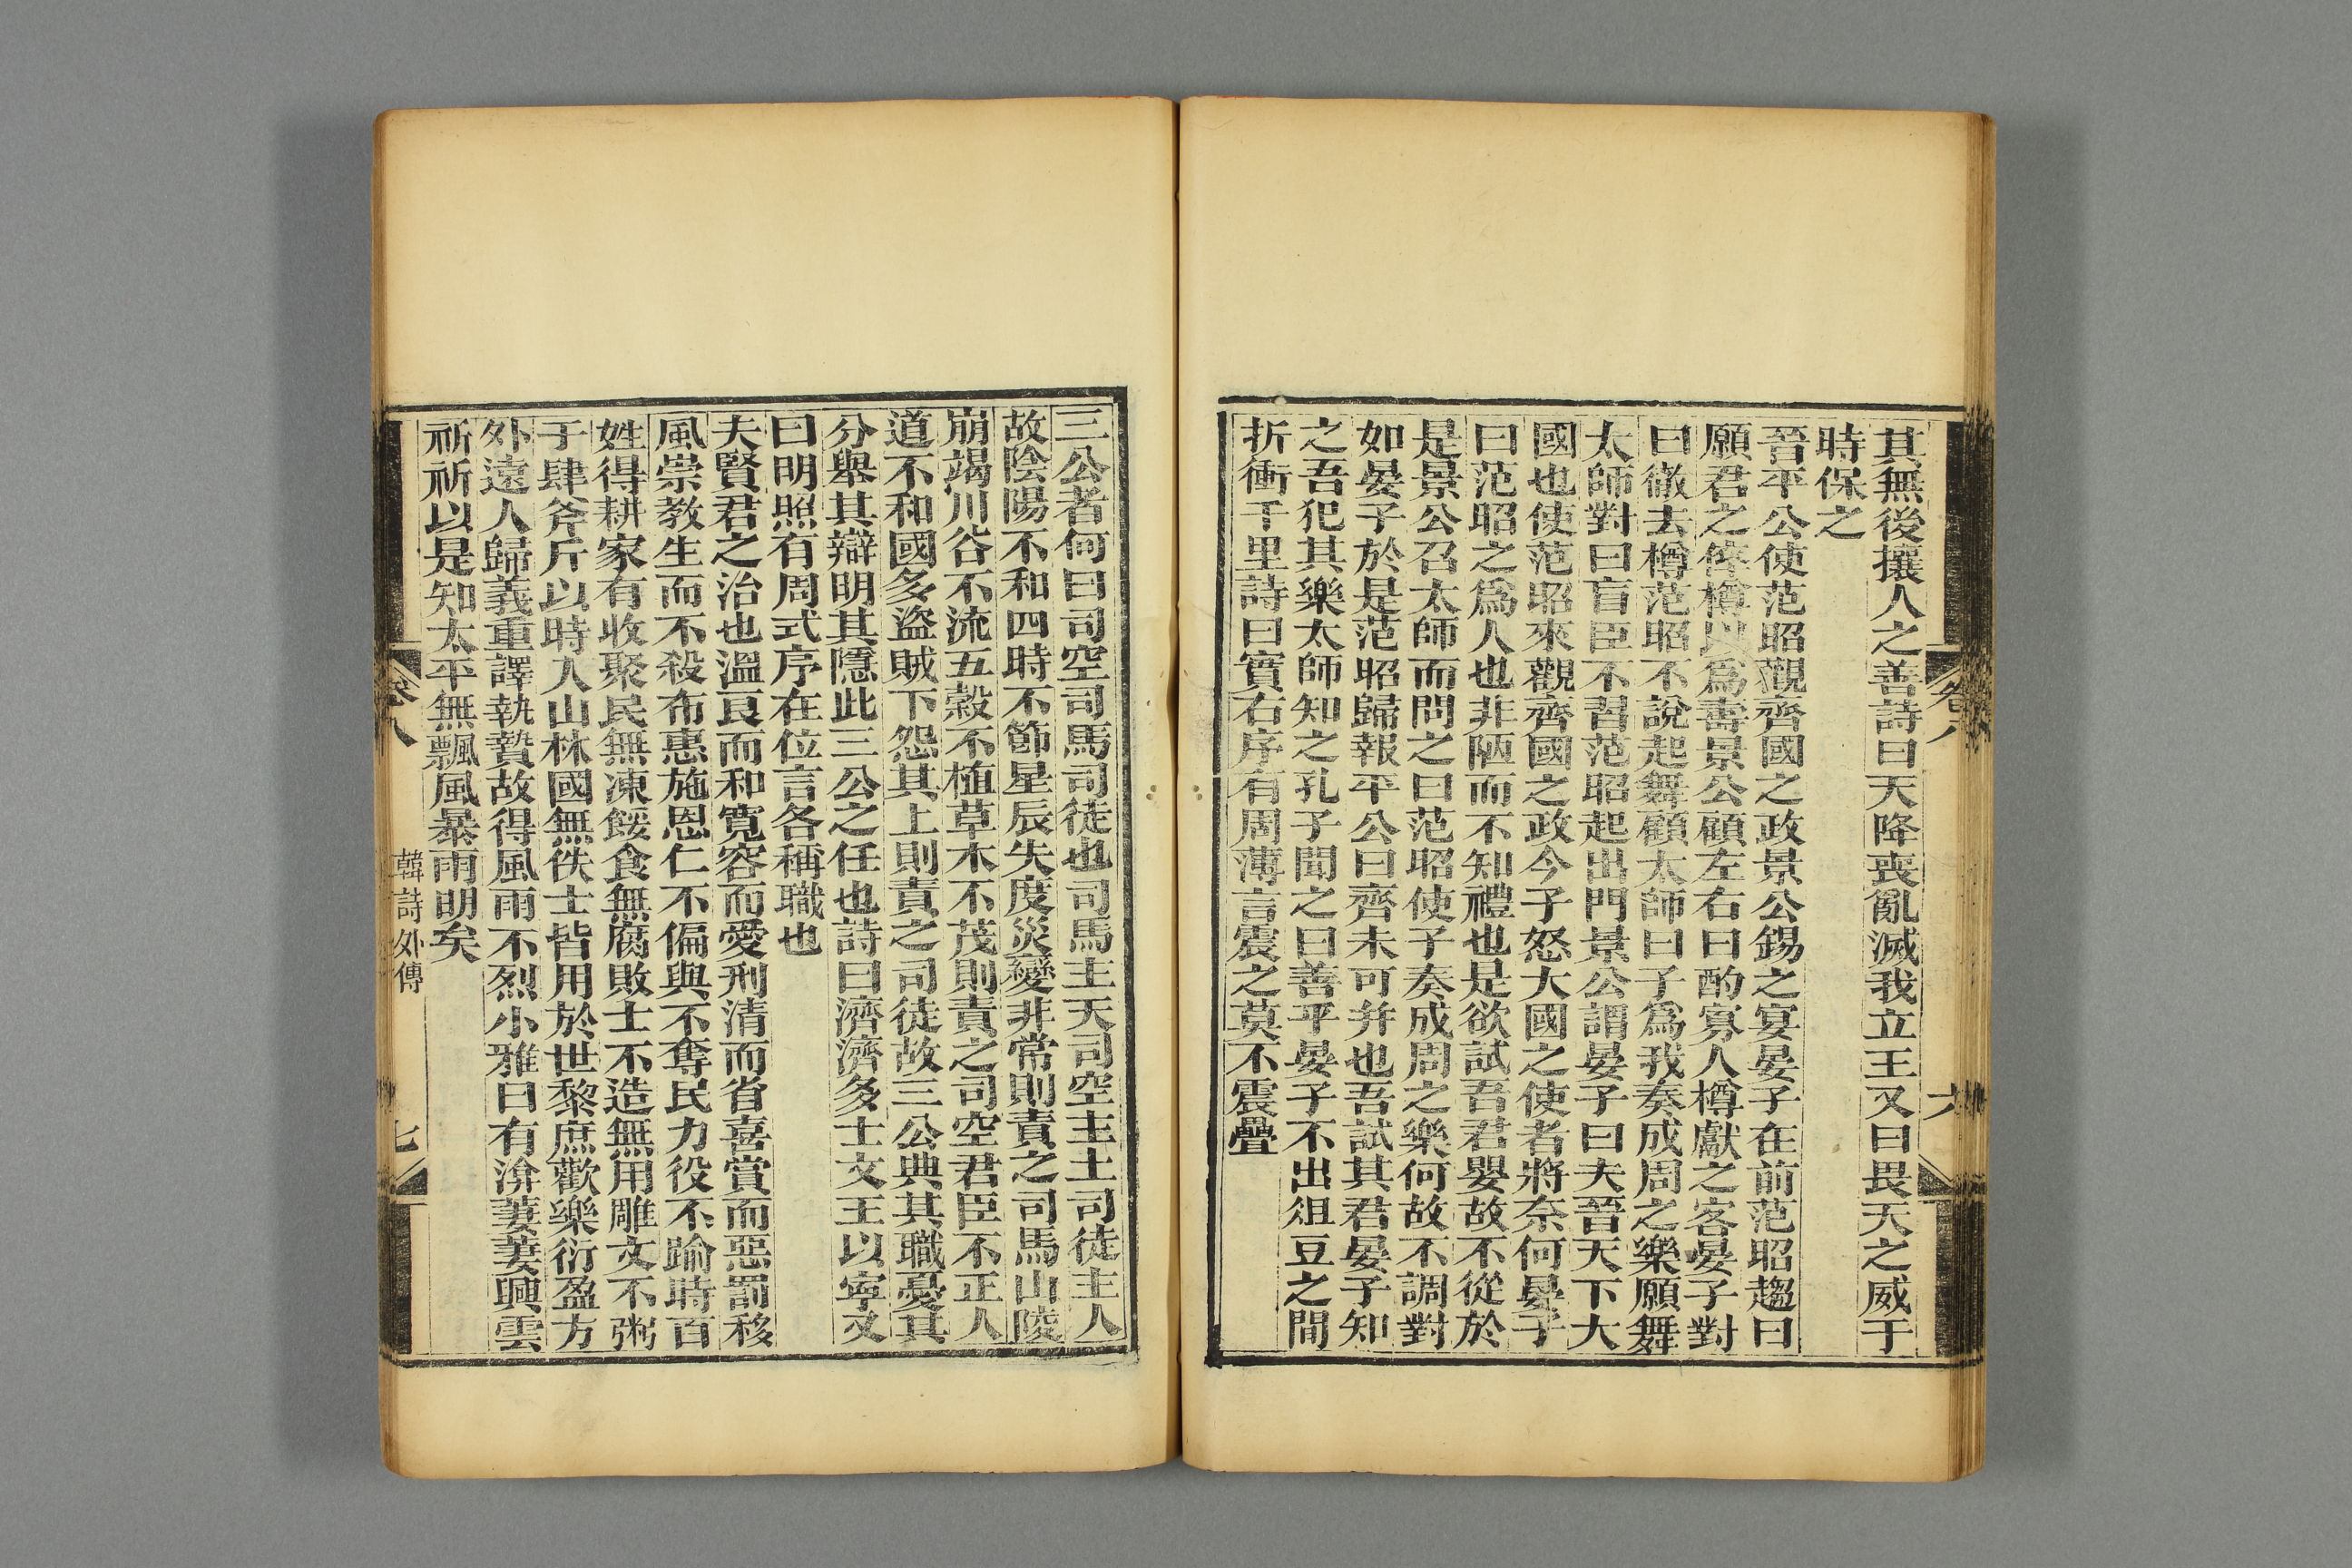 其無後攘人之善詩曰天降喪亂滅我立王又曰畏天之威于
時保之
晉平公使范昭觀齊國之政景公錫之宴晏子在前范昭趨曰
願君之倅樽以爲壽景公顧左右曰酌寡人樽獻之客晏子對
曰徹去樽范昭不說起舞顧太師曰子爲我奏成周之樂願舞
太師對曰盲臣不習范昭起出門景公謂晏子曰夫晉天下大
國也使范昭來觀齊國之政今子怒大國之使者將奈何晏子
曰范昭之爲人也非陋而不知禮也是欲試吾君嬰故不從於
是景公召太師而問之曰范昭使子奏成周之樂何故不調對
如晏子於是范昭歸報平公曰齊未可并也吾試其君晏子知
之吾犯其樂太師知之孔子聞之曰善乎晏子不出俎豆之間
折衝千里詩曰實右序有周薄言震之莫不震疊
卷八
六
三公者何曰司空司馬司徒也司馬主天司空主土司徒主人
故陰陽不和四時不節星辰失度災變非常則責之司馬山陵
崩竭川谷不流五穀不植草木不茂則責之司空君臣不正人
道不和國多盜賊下怨其上則責之司徒故三公典其職憂其
分舉其辯明其隱此三公之任也詩曰濟濟多士文王以寧又
曰明照有周式序在位言各稱職也
夫賢君之治也溫良而和寬容而愛刑清而省喜賞而惡罰移
風崇教生而不殺布惠施恩仁不偏與不奪民力役不踰時百
姓得耕家有收聚民無凍餒食無腐敗士不造無用雕文不粥
于肆斧斤以時入山林國無佚士皆用於世黎庶歡樂衍盈方
外遠人歸義重譯執贄故得風雨不烈小雅曰有渰萋萋興雲
祈祈以是知太平無飄風暴雨明矣
卷八
韓詩外傳
七